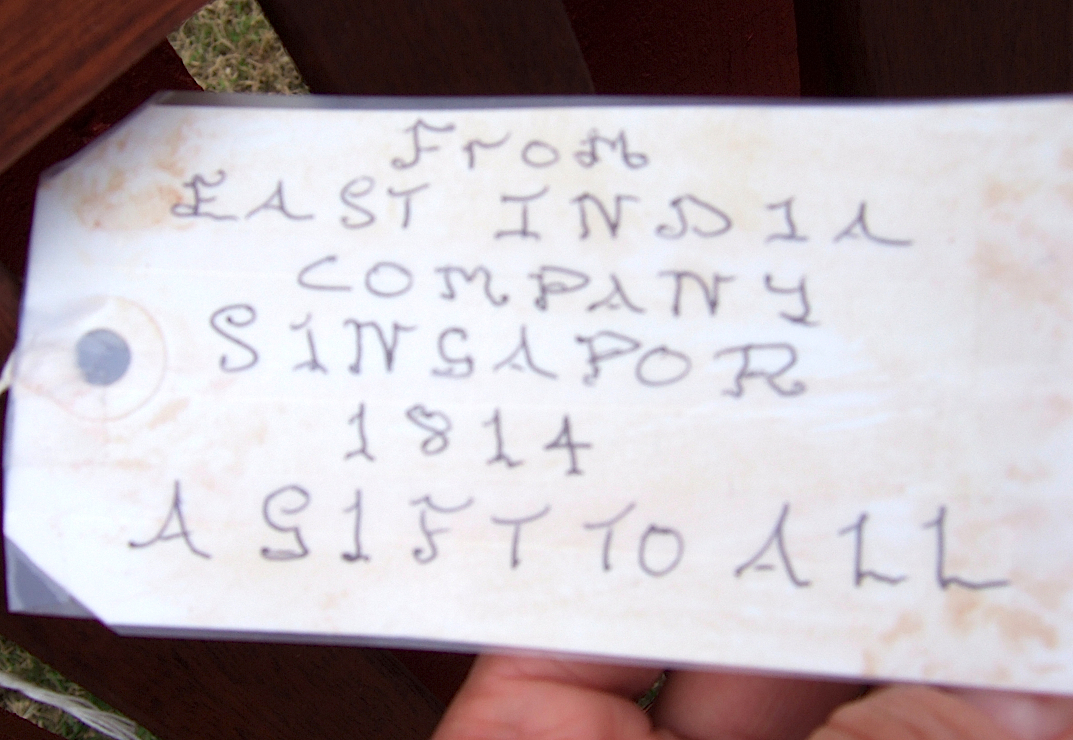 From
EAST INDIA
COMPANY
SINGAPOR
1814
A GIFT TO ALL